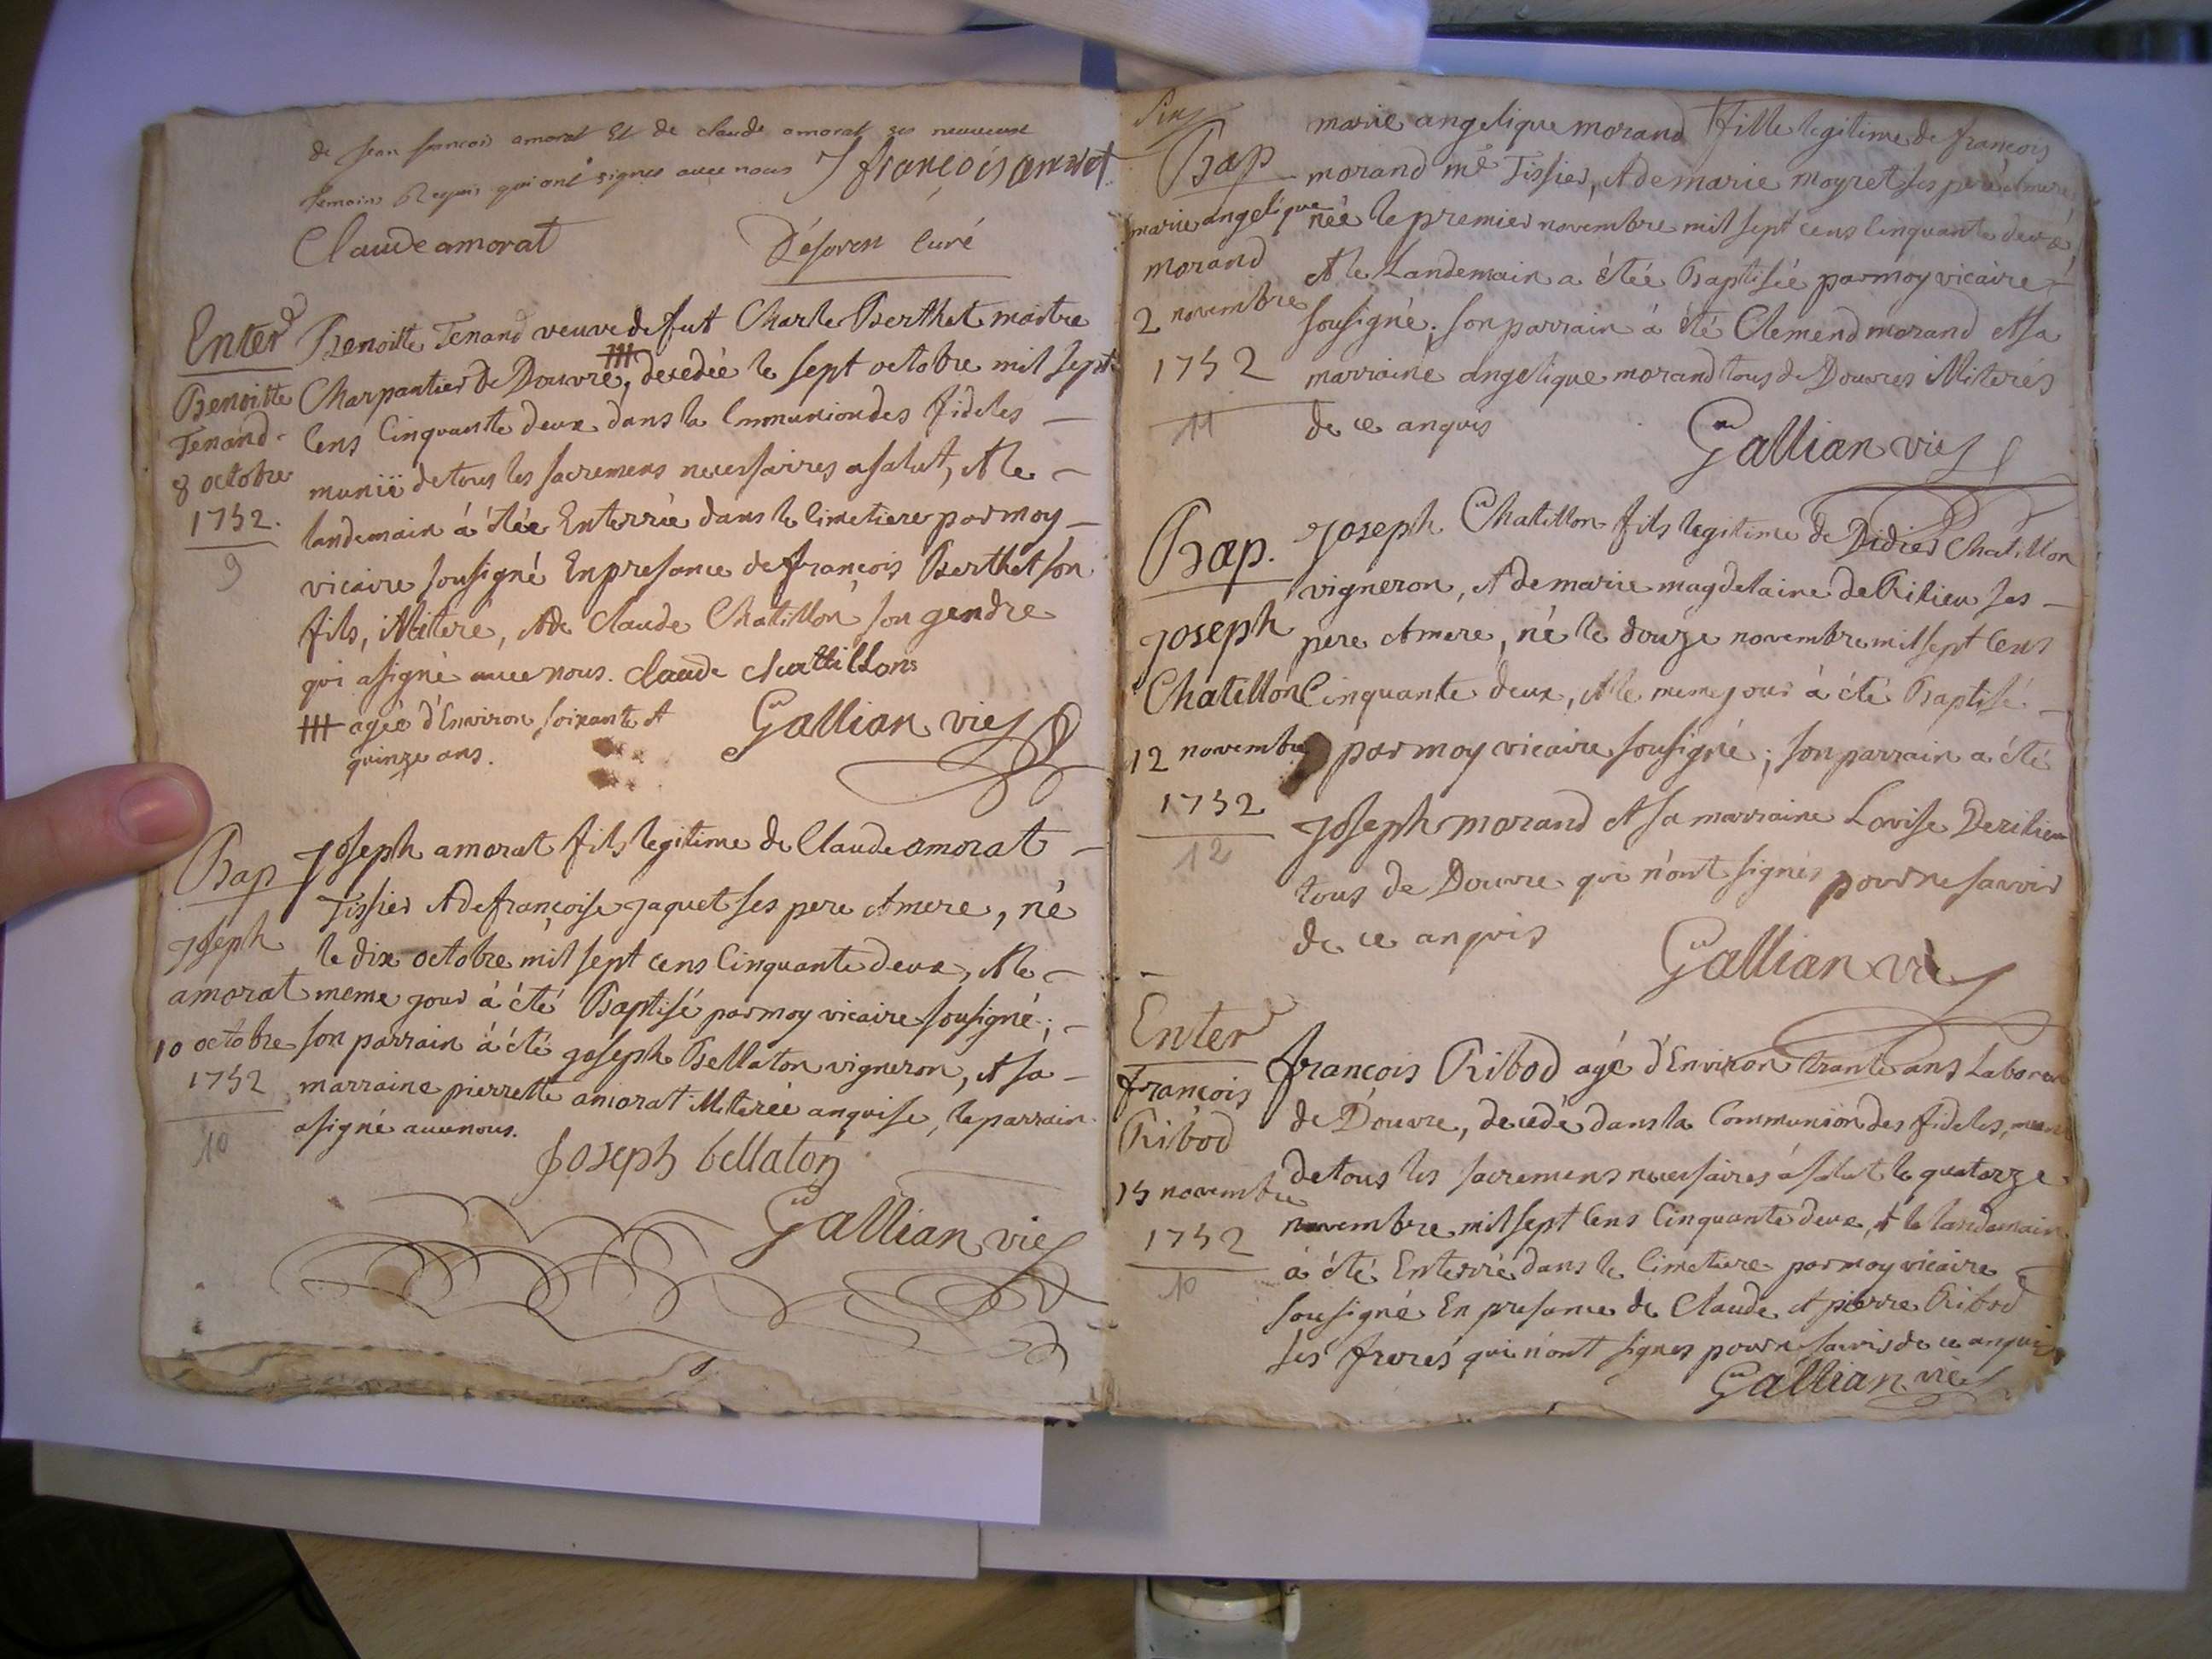 de Jean francois amorat Et de claude amorat ses neuveux
temoin Requis qui ont signes avec nous J françois amorat
Claude amorat Désoren Curé
Enter
Benoitte
Tenand
8 octobre
1752.
9
Benoitte Tenand veuve de fut Charle Berthet maitre
Charpantier de Douvre, decedée le sept octobre mil sept
Cens Cinquante deux dans la Communion des fideles
munië de tous les sacremens necessaires a salut, & le
landemain à étée Enterrée dans le Cimetiere par moy
vicaire sousigné En presance de françois Berthet son
fils, illiteré, & de Claude Chatillon son gendre
qui a signé avec nous. claude chatillon
agée d'Environ soixante &
quinze ans.
Gallian vic
Bap
Joseph
amorat
10 octobre
1752
10
Joseph amorat fils legitime de Claude amorat
Tissier & de françoise jaquet ses pere & mere, né
le dix octobre mil sept cens Cinquante deux, & le
meme jour à été Baptisé par moy vicaire sousigné;
son parrain à été joseph Bellaton vigneron, & sa
marraine pierrette amorat illiterée anquise, le parrain
a signé avec nous.
Joseph bellaton
Gallian vic
Bap
marie angelique
morand
2 novembre
1752
11
marie angelique morand fille legitime de françois
morand me Tissier, & de marie moyret ses pere & mere,
née le premier novembre mil sept cens Cinquante deux,
& le Landemain a étée Baptisée par moy vicaire
sousigné; son parrain à été Clemend morand & sa
marraine angelique morand tous de Douvres illiterés
de ce anquis
Gallian vic
Bap.
Joseph
Chatillon
12 novembre
1752
12
Joseph Chatillon fils legitime de Didier Chatillon
vigneron, & de marie magdelaine de Rilieu ses
pere & mere, né le douze novembre mil sept Cens
Cinquante deux, & le meme jour à été Baptisé
par moy vicaire sousigné; son parrain a été
Joseph morand & sa marraine Lovise Derilieu
tous de Douvre qui n'ont signés pour ne savoir
de ce anquis
Gallian vic
Enter
françois
Ribod
15 novembre
1752
10
françois Ribod agé d'Environ trante ans Laboreur
de Douvre, decedé dans la Communion des fideles, muni
de tous les sacremens necessaires à salut le quatorze
novembre mil sept Cens Cinquante deux, & le landemain
à été Enterré dans le Cimetiere par moy vicaire
sousigné En presance de Claude & pierre Ribod
ses freres qui n'ont signes pour ne savoir de ce anquis
Gallian vic